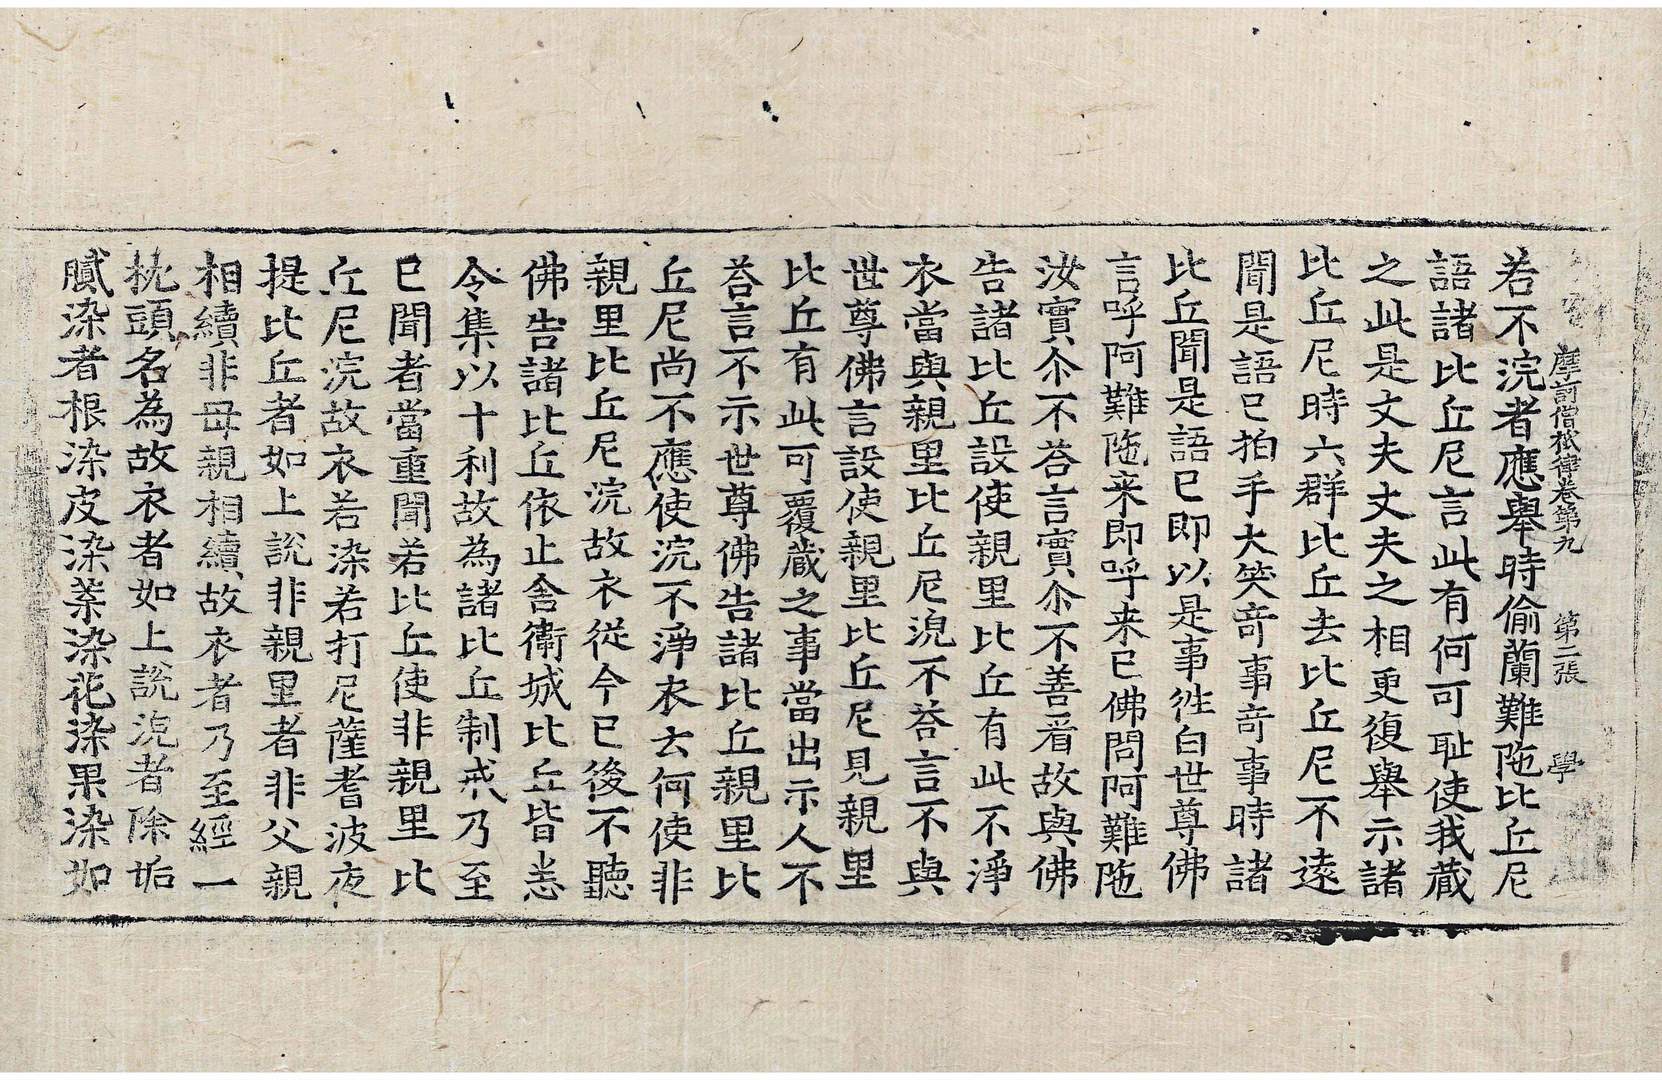 摩訶僧祇律卷第九 第二張 學
若不浣者應舉時偷蘭難陁比丘尼
語諸比丘尼言此有何可耻使我蔵
之此是丈夫丈夫之相更復舉示諸
比丘尼時六群比丘去比丘尼不遠
聞是語已拍手大笑竒事竒事時諸
比丘聞是語已即以是事徃白世尊佛
言呼阿難陁来即呼来已佛問阿難陁
汝實尒不荅言實尒不善看故與佛
告諸比丘設使親里比丘有此不淨
衣當與親里比丘尼浣不荅言不與
世尊佛言設使親里比丘尼見親里
比丘有此可覆蔵之事當出示人不
荅言不示世尊佛告諸比丘親里比
丘尼尚不應使浣不淨衣云何使非
親里比丘尼浣故衣從今已後不聽
佛告諸比丘依止舍衛城比丘皆悉
令集以十利故為諸比丘制戒乃至
已聞者當重聞若比丘使非親里比
丘尼浣故衣若染若打尼薩耆波夜
提比丘者如上說非親里者非父親
相續非母親相續故衣者乃至經一
枕頭名為故衣者如上說浣者除垢
膩染者根染皮染葉染花染果染如